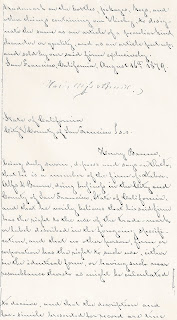 and marks on the bottles, packages, bags, and
other things containing our Whisky to designate
into the same as an article of a particular brand
character or quality and as an article put up
and sold by our said firm exclusively.
San Francisco, California, August 26th 1879

State of California
City & County of San Francisco } ss.
Henry Braun,
being duly sworn, deposes and says on Oath,
that he is a member of the firm of Messrs.
doing business in the City and
County of San Francisco, State of California,
and that he verily believes that his said firm
has the right to the use of the trade-mark
or label described in the foregoing specifi-
cation, and that no other person, firm or
corporation has the right to such use, either
in the identical form, or having such near
resemblance thereto as might be calculated
to deceive, and that the description and
fac-simile presented for record are true